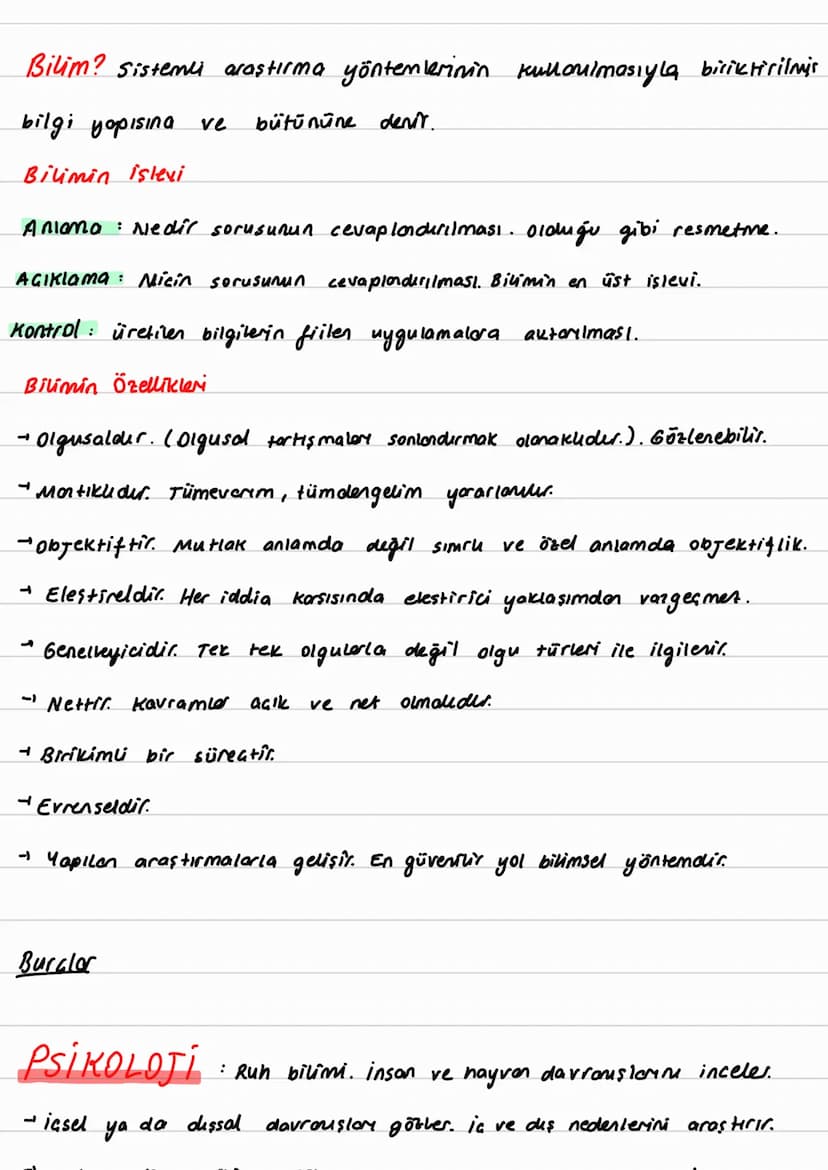 Bilim? Sistemli araştırma yöntemlerinin kullanılmasıyla biriktirilmiş
bilgi yapısına ve bütününe denir.
Bilimin işlevi
Anlama : Nedir sorusunun cevaplandırılması. Olduğu gibi resmetme.
Açıklama : Niçin sorusunun cevaplandırılması. Bilimin en üst işlevi.
Kontrol : üretilen bilgilerin fiilen uygulamalara aktarılması.
Bilimin Özellikleri
→ Olgusaldır. (Olgusal tartışmaları sonlandırmak olanaklıdır.). Gözlenebilir.
→ Mantıklıdır. Tümevarım, tümdengelim yararlanılır.
→ Objektiftir. Mutlak anlamda değil sınırlı ve özel anlamda objektiflik.
→ Eleştireldir. Her iddia karşısında eleştirici yaklaşımdan vazgeçmez.
→ Genelleyicidir. Tek tek olgularla değil olgu türleri ile ilgilenir.
→ Nettir. Kavramlar açık ve net olmalıdır.
→ Birikimli bir süreçtir.
→ Evrenseldir.
→ Yapılan araştırmalarla gelişir. En güvenilir yol bilimsel yöntemdir.
Burçlar
PSİKOLOJİ : Ruh bilimi. insan ve hayvan davranışlarını inceler.
→ içsel ya da dışsal davranışları gözler. iç ve dış nedenlerini araştırır.